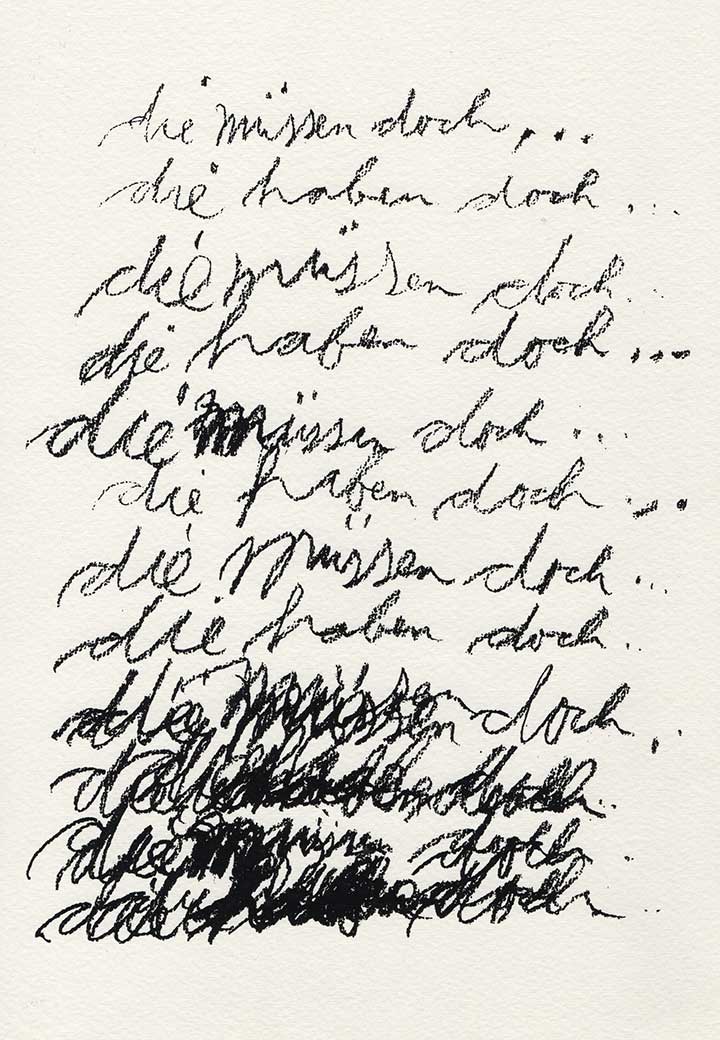 die müssen doch...
die haben doch...
die müssen doch...
die haben doch...
die müssen doch...
die haben doch...
die müssen doch...
die haben doch...
die müssen doch..
die haben doch..
die müssen doch..
die doch..